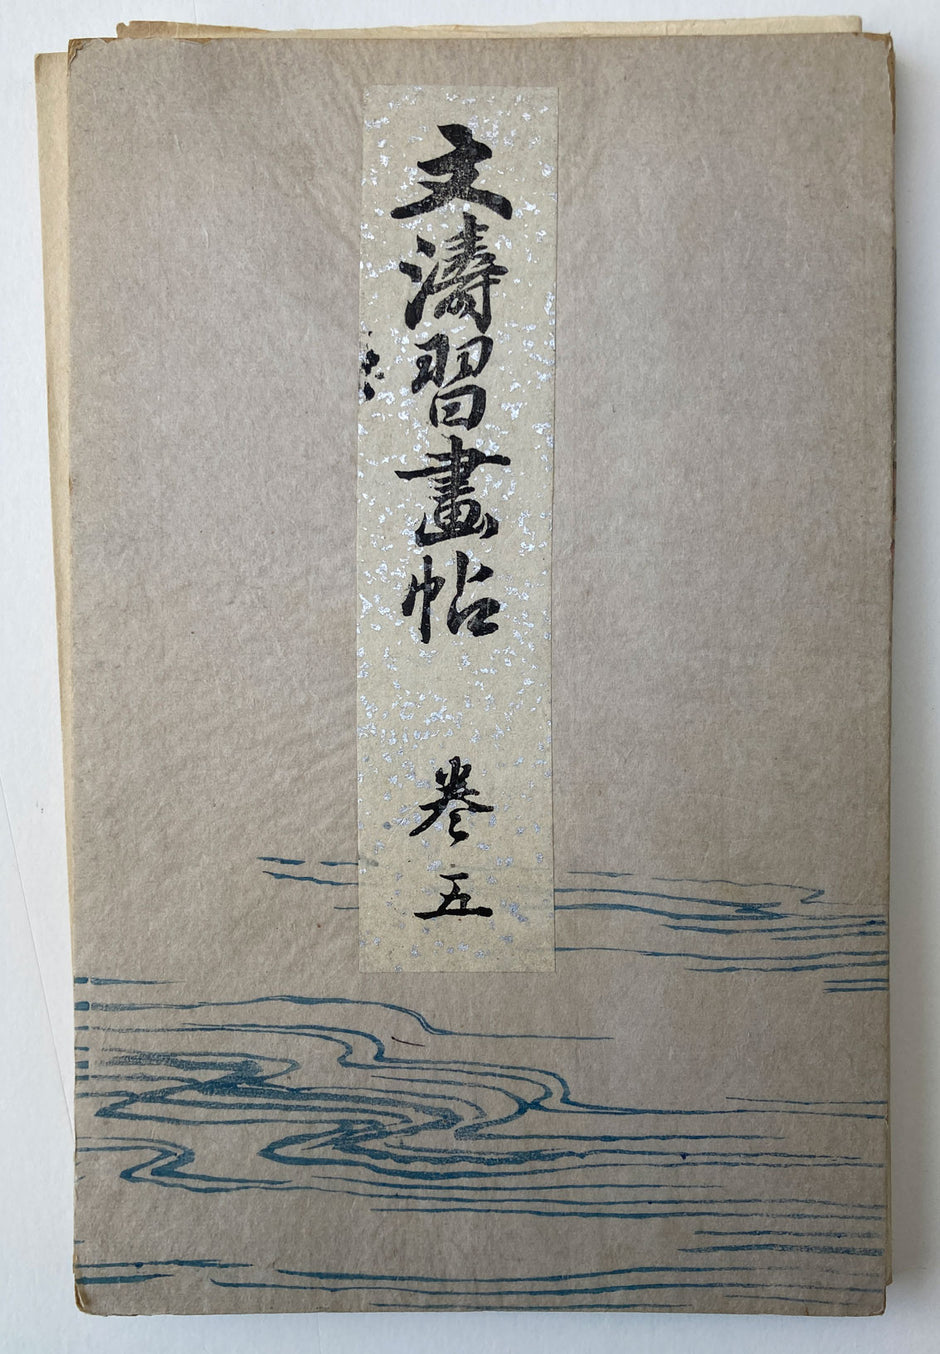 文濤習畫帖 卷五